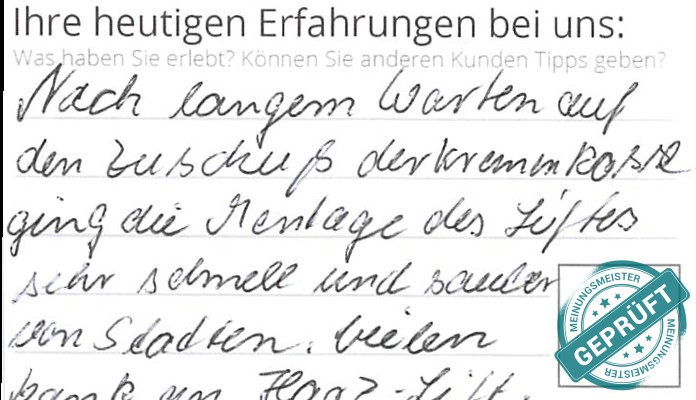 Ihre heutigen Erfahrungen bei uns:
Was haben Sie erlebt? Können Sie anderen Kunden Tipps geben?
Nach langem Warten auf
den Zuschuß der Krankenkasse
ging die Montage des Liftes
sehr schnell und sauber
von Statten. Vielen
Dank an Harz-Lift.
MEINUNGSMEISTER
GEPRÜFT
MEINUNGSMEISTER